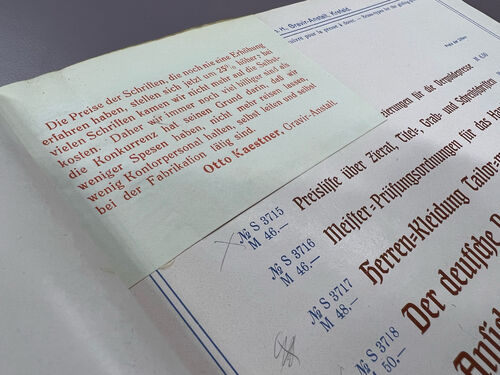 Die Preise der Schriften, die noch nie eine Erhöhung
erfahren haben, stellen sich jetzt um 25% höher: bei
vielen Schriften kamen wir nicht mehr auf die Selbst-
kosten. Daher wir immer noch viel billiger sind als
die Konkurrenz hat seinen Grund darin, daß wir
weniger Spesen haben, nicht mehr reisen lassen,
wenig Kontorpersonal halten, selbst leiten und selbst
bei der Fabrikation tätig sind.
Otto Kaestner, Gravir-Anstalt.
H., Gravir-Anstalt, Krefeld
für die Vergolderpresse
№ S 3715
M 46.—
Preisliste über Zierrat, Titel-, Grad- und Schreibschriften
№ S 3716
M 46.—
Meister-Prüfungsordnungen für das
№ S 3717
M 48.—
Herren-Kleidung Tailor-
№ S 3718
50.—
Der deutsche